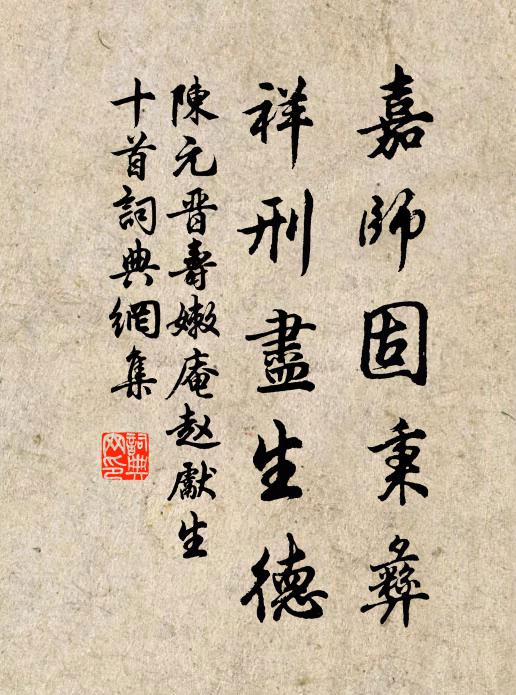 嘉師固秉彝
祥刑盡生德
陳元晋壽嫩庵赵獻生
十首詞典網集
詞典网印